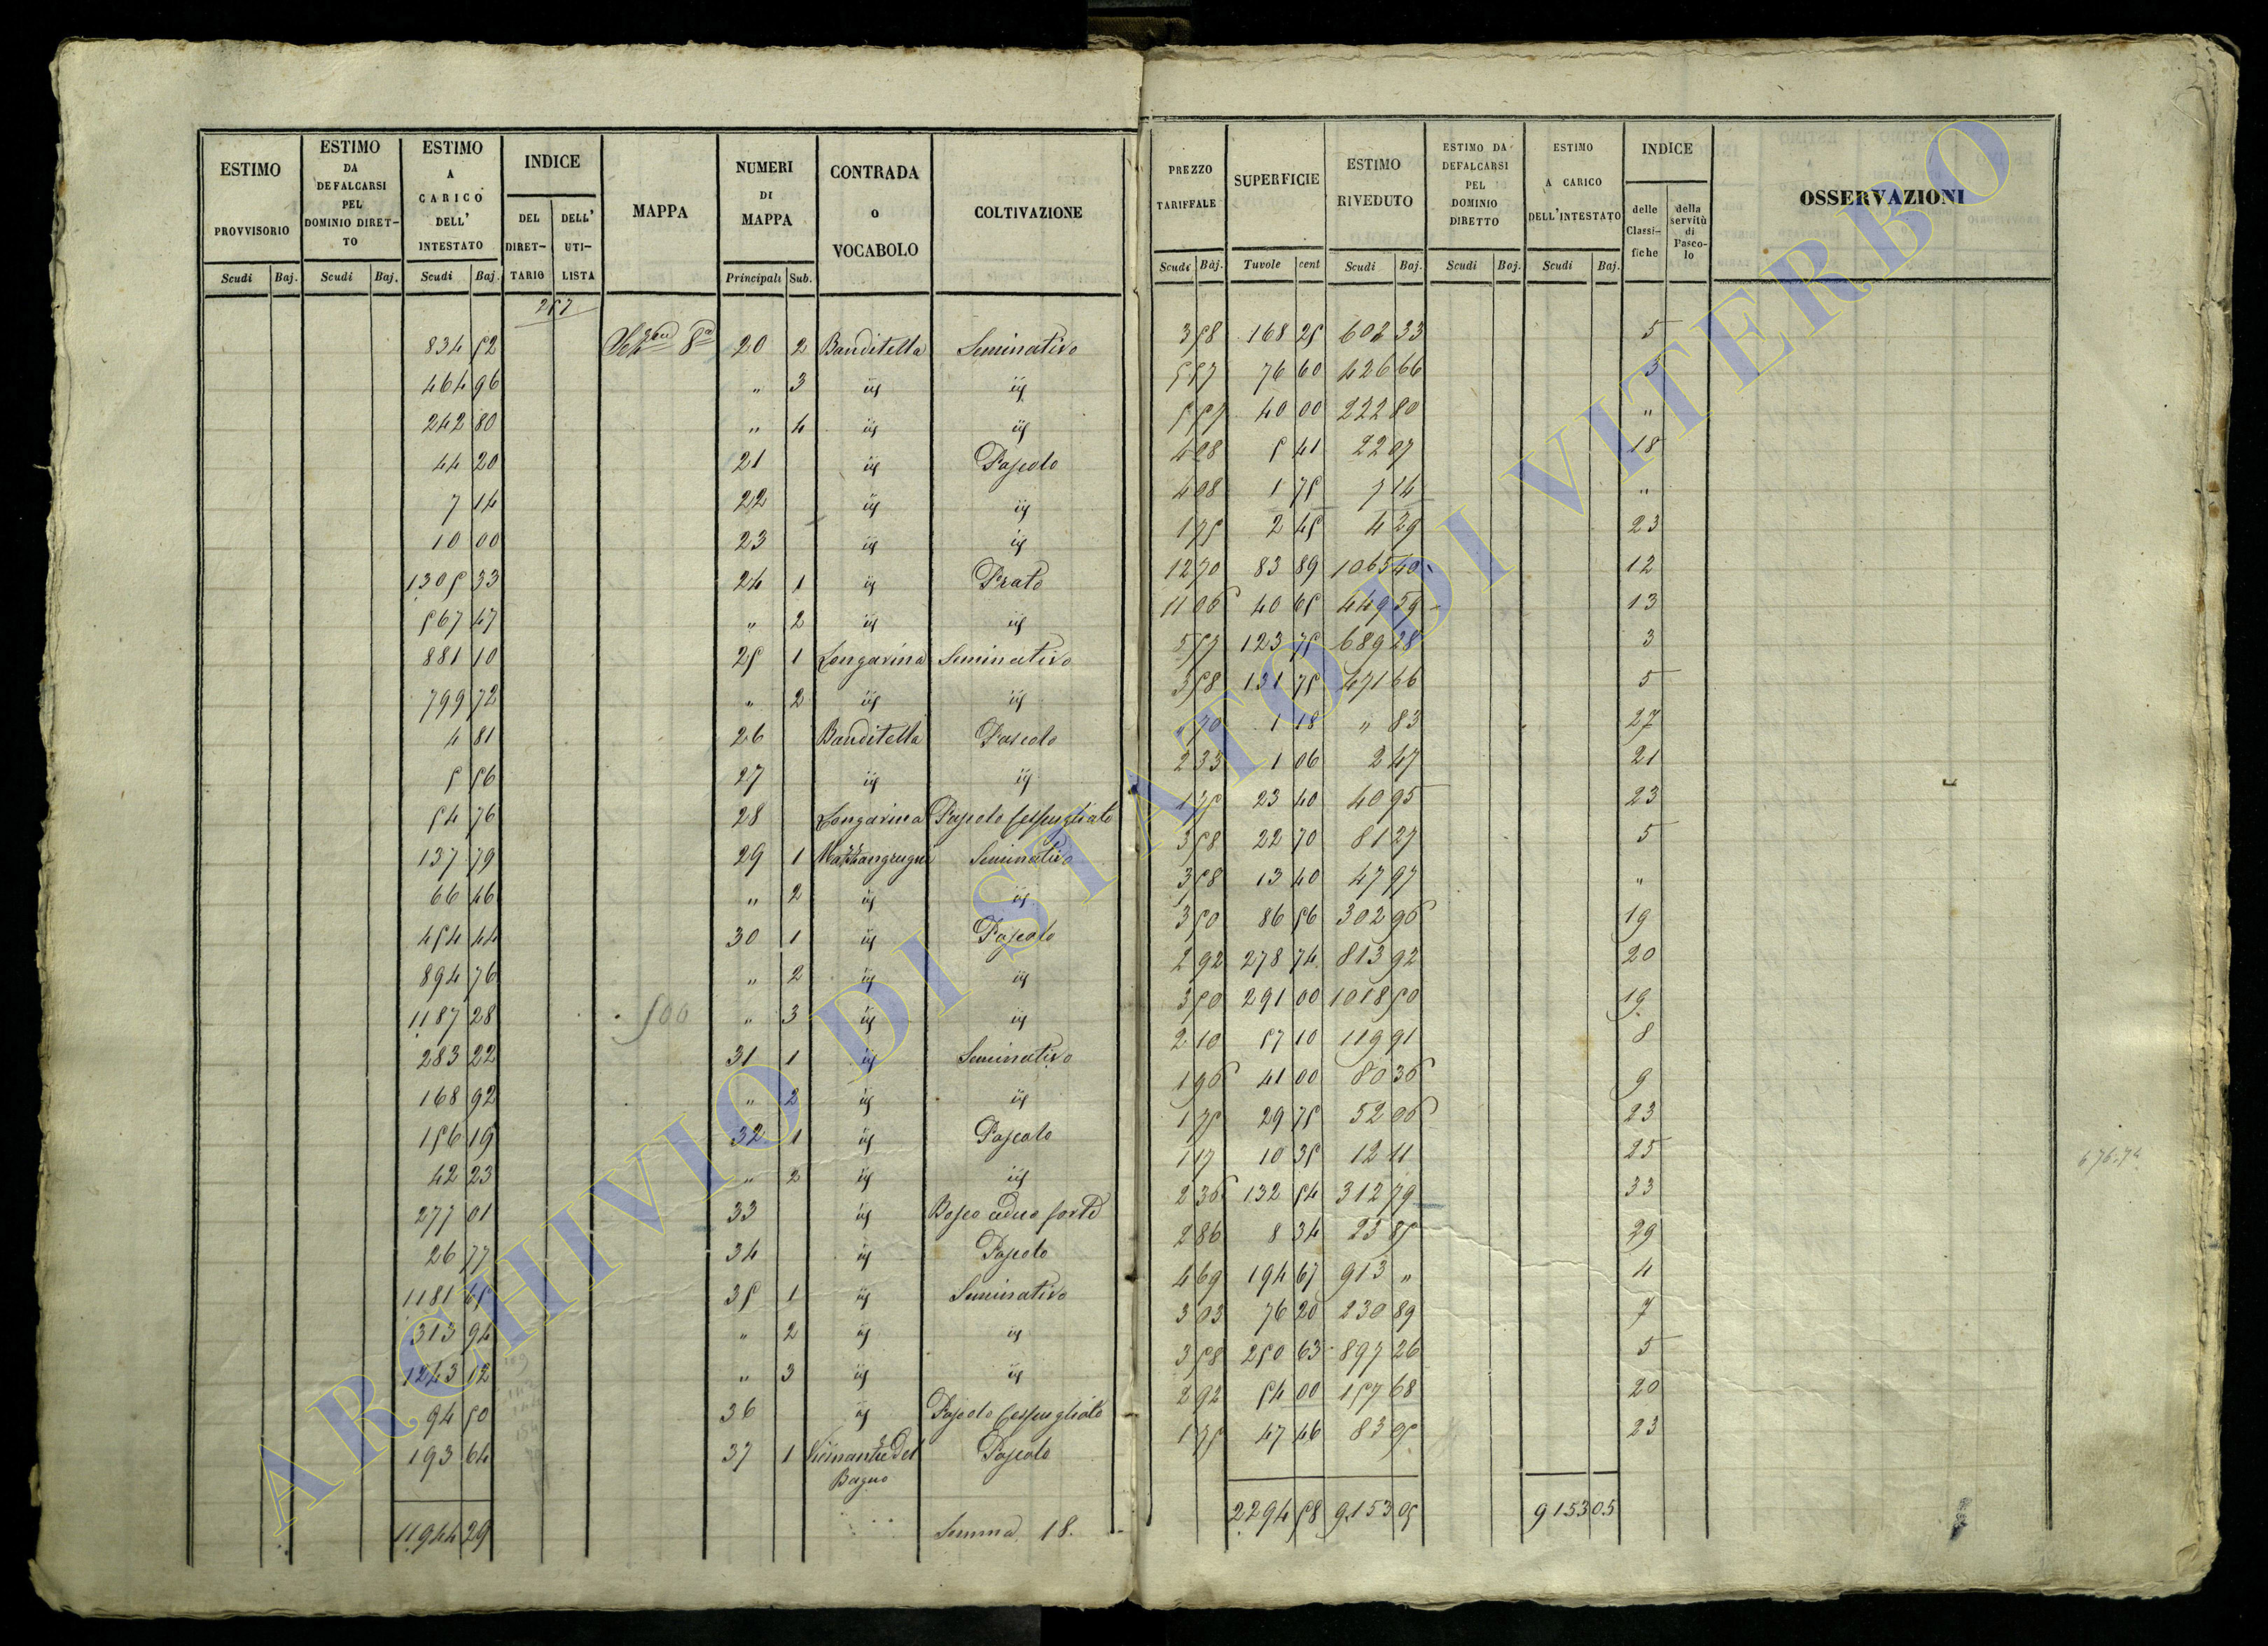 ESTIMO PROVVISORIO Scudi Baj. | ESTIMO DA DEFALCARSI PEL DOMINIO DIRETTO Scudi Baj. | ESTIMO A CARICO DELL' INTESTATO Scudi Baj. | INDICE DEL DIRETTARIO DELL' UTILISTA | MAPPA | NUMERI DI MAPPA Principali Sub. | CONTRADA O VOCABOLO | COLTIVAZIONE | PREZZO TARIFFALE Scudi Baj. | SUPERFICIE Tavole cent | ESTIMO RIVEDUTO Scudi Baj. | ESTIMO DA DEFALCARSI PEL DOMINIO DIRETTO Scudi Baj. | ESTIMO A CARICO DELL'INTESTATO Scudi Baj. | INDICE delle Classifiche della servitù di Pascolo | OSSERVAZIONI
257
834 52 Sez.ne 8a 20 2 Banditella Seminativo 3 58 168 25 602 33 5
464 96 " 3 id id 5 57 76 60 426 66 3
242 80 " 4 id id 5 57 40 00 222 80 "
44 20 21 id Pascolo 4 08 5 41 22 07 18
7 14 22 id id 4 08 1 75 7 14 "
10 00 23 id id 1 75 2 45 4 29 23
1305 33 24 1 id Prato 12 70 83 89 1065 40 12
567 47 " 2 id id 11 06 40 65 449 59 13
881 10 25 1 Longarina Seminativo 5 57 123 75 689 28 3
799 72 " 2 id id 3 58 131 75 471 66 5
4 81 26 Banditella Pascolo " 70 1 18 " 83 27
5 56 27 id id 2 33 1 06 2 47 21
54 76 28 Longarina Pascolo cespugliato 1 75 23 40 40 95 23
137 79 29 1 Seminativo 3 58 22 70 81 27 5
66 46 " 2 id id 3 58 13 40 47 97 "
454 44 30 1 id Pascolo 3 50 86 56 302 96 19
894 76 " 2 id id 2 92 278 74 813 92 20
1187 28 500 " 3 id id 3 50 291 00 1018 50 19
283 22 31 1 id Seminativo 2 10 57 10 119 91 8
168 92 " 2 id id 1 96 41 00 80 36 9
156 19 32 1 id Pascolo 1 75 29 75 52 06 23
42 23 " 2 id id 1 17 10 35 12 11 25
277 01 33 id Bosco ceduo forte 2 36 132 54 312 79 33
26 77 34 id Pascolo 2 86 8 34 23 85 29
1181 65 35 1 id Seminativo 4 69 194 67 913 " 4
313 94 " 2 id id 3 03 76 20 230 89 7
1243 12 " 3 id id 3 58 250 63 897 26 5
94 50 36 id Pascolo cespugliato 2 92 54 00 157 68 20
193 64 37 1 del Bagno Pascolo 1 75 47 46 83 05 23
11944 29 Somma 18. 2294 58 9153 05 9153 05